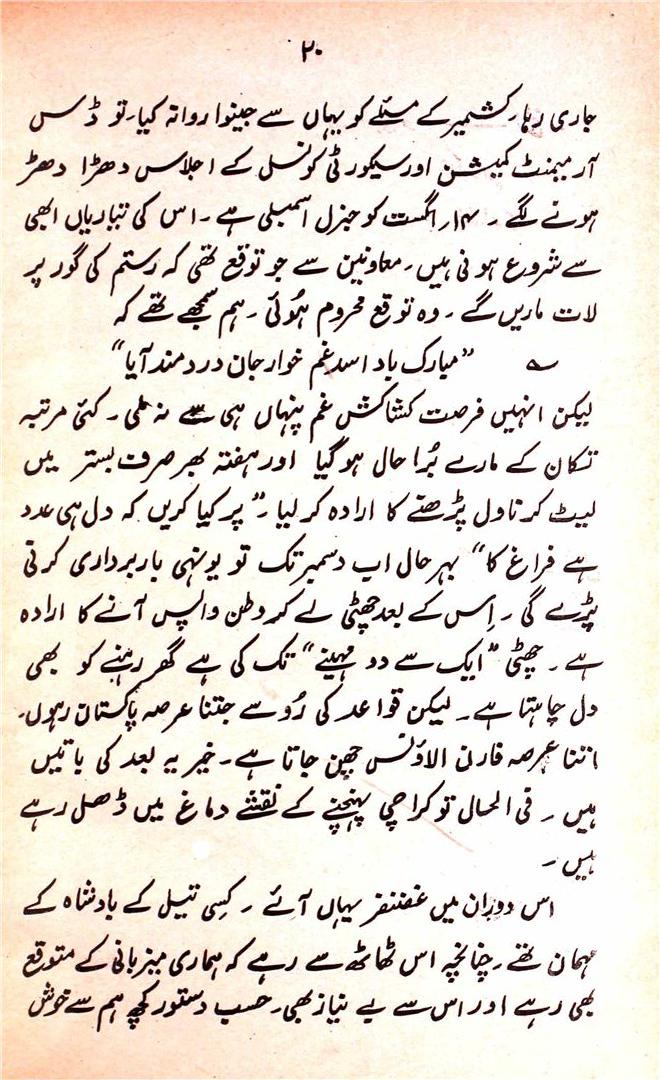 ۲۰
جاری رہا۔ کشمیر کے مسئلے کو یہاں سے جینوا روانہ کیا۔ تو ڈس
آرمیمنٹ کمیشن اور سیکورٹی کونسل کے اجلاس دھڑا دھڑ
ہونے لگے۔ ۱۴؍ اگست کو جنرل اسمبلی ہے۔ اس کی تیاریاں ابھی
سے شروع ہونی ہیں۔ معاونین سے جو توقع تھی کہ رستم کی گور پر
لات ماریں گے۔ وہ توقع محروم ہوُئی۔ ہم سمجھے تھے کہ
؎ ”مبارک باد اسد غم خوار جان درد مند آیا“
لیکن انہیں فرصت کشاکش غم پنہاں ہی سے نہ ملی۔ کئی مرتبہ
تکان کے مارے بُرا حال ہو گیا اور ہفتہ بھر صرف بستر میں
لیٹ کر ناول پڑھنے کا ارادہ کر لیا۔ ”پر کیا کریں کہ دل ہی عدد
ہے فراغ کا“ بہر حال اب دسمبر تک تو یونہی باربرداری کرتی
پڑے گی۔ اِس کے بعد چھٹی لے کر وطن واپس آنے کا ارادہ
ہے۔ چھٹی ”ایک سے دو مہینے“ تک کی ہے گھر رہنے کو بھی
دل چاہتا ہے۔ لیکن قواعد کی رُو سے جتنا عرصہ پاکستان رہوں۔
اتنا عرصہ فارن الاؤنس چھن جاتا ہے۔ خیر یہ بعد کی باتیں
ہیں۔ فی الحال تو کراچی پہنچنے کے نقشے دماغ میں ڈھل رہے
ہیں۔
اس دوران میں غضنفر یہاں آئے۔ کِسی تیل کے بادشاہ کے
مہمان تھے۔ چنانچہ اس ٹھاٹھ سے رہے کہ ہماری میزبانی کے متوقع
بھی رہے اور اس سے بے نیاز بھی۔ حسب دستور کچھ ہم سے خوش